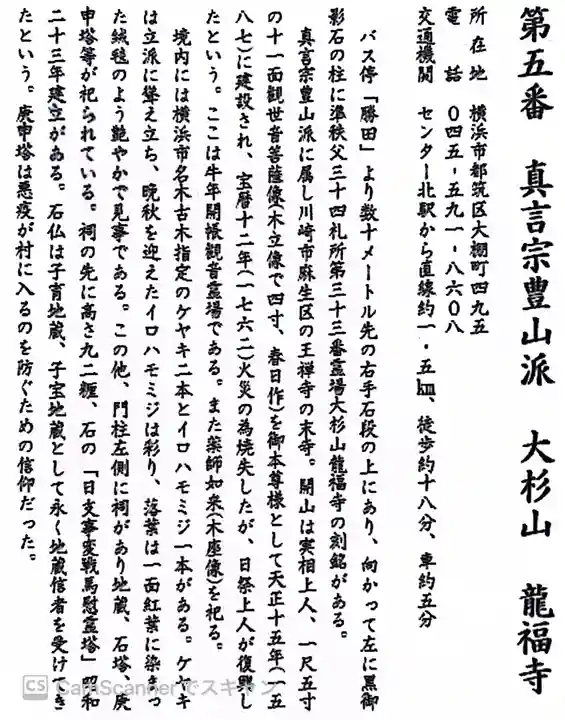 第五番 真言宗豊山派 大杉山 龍福寺
所在地 横浜市都筑区大棚町四九五
電話 〇四五-五九一-八六〇八
交通機関 センター北駅から直線約一・五㎞、徒歩約十八分、車約五分
バス停「勝田」より数十メートル先の右手石段の上にあり、向かって左に黒御
影石の柱に準秩父三十四札所第三十三番霊場大杉山龍福寺の刻銘がある。
真言宗豊山派に属し川崎市麻生区の王禅寺の末寺。開山は実相上人、一尺五寸
の十一面観世音菩薩像(木立像で四寸、春日作)を御本尊様として天正十五年(一五
八七)に建設され、宝暦十二年(一七六二)火災の為焼失したが、日祭上人が復興し
たという。ここは牛年開帳観音霊場である。また薬師如来(木座像)を祀る。
境内には横浜市名木古木指定のケヤキ二本とイロハモミジ一本がある。ケヤキ
は立派に聳え立ち、晩秋を迎えたイロハモミジは彩り、落葉は一面紅葉に染まっ
た絨毯のよう艶やかで見事である。この他、門柱左側に祠があり地蔵、石塔、庚
申塔等が祀られている。祠の先に高さ九二糎、石の「日支事変戦馬慰霊塔」昭和
二十三年建立がある。石仏は子育地蔵、子宝地蔵として永く地蔵信者を受けてき
たという。庚申塔は悪疫が村に入るのを防ぐための信仰だった。
CS CamScannerでスキャン